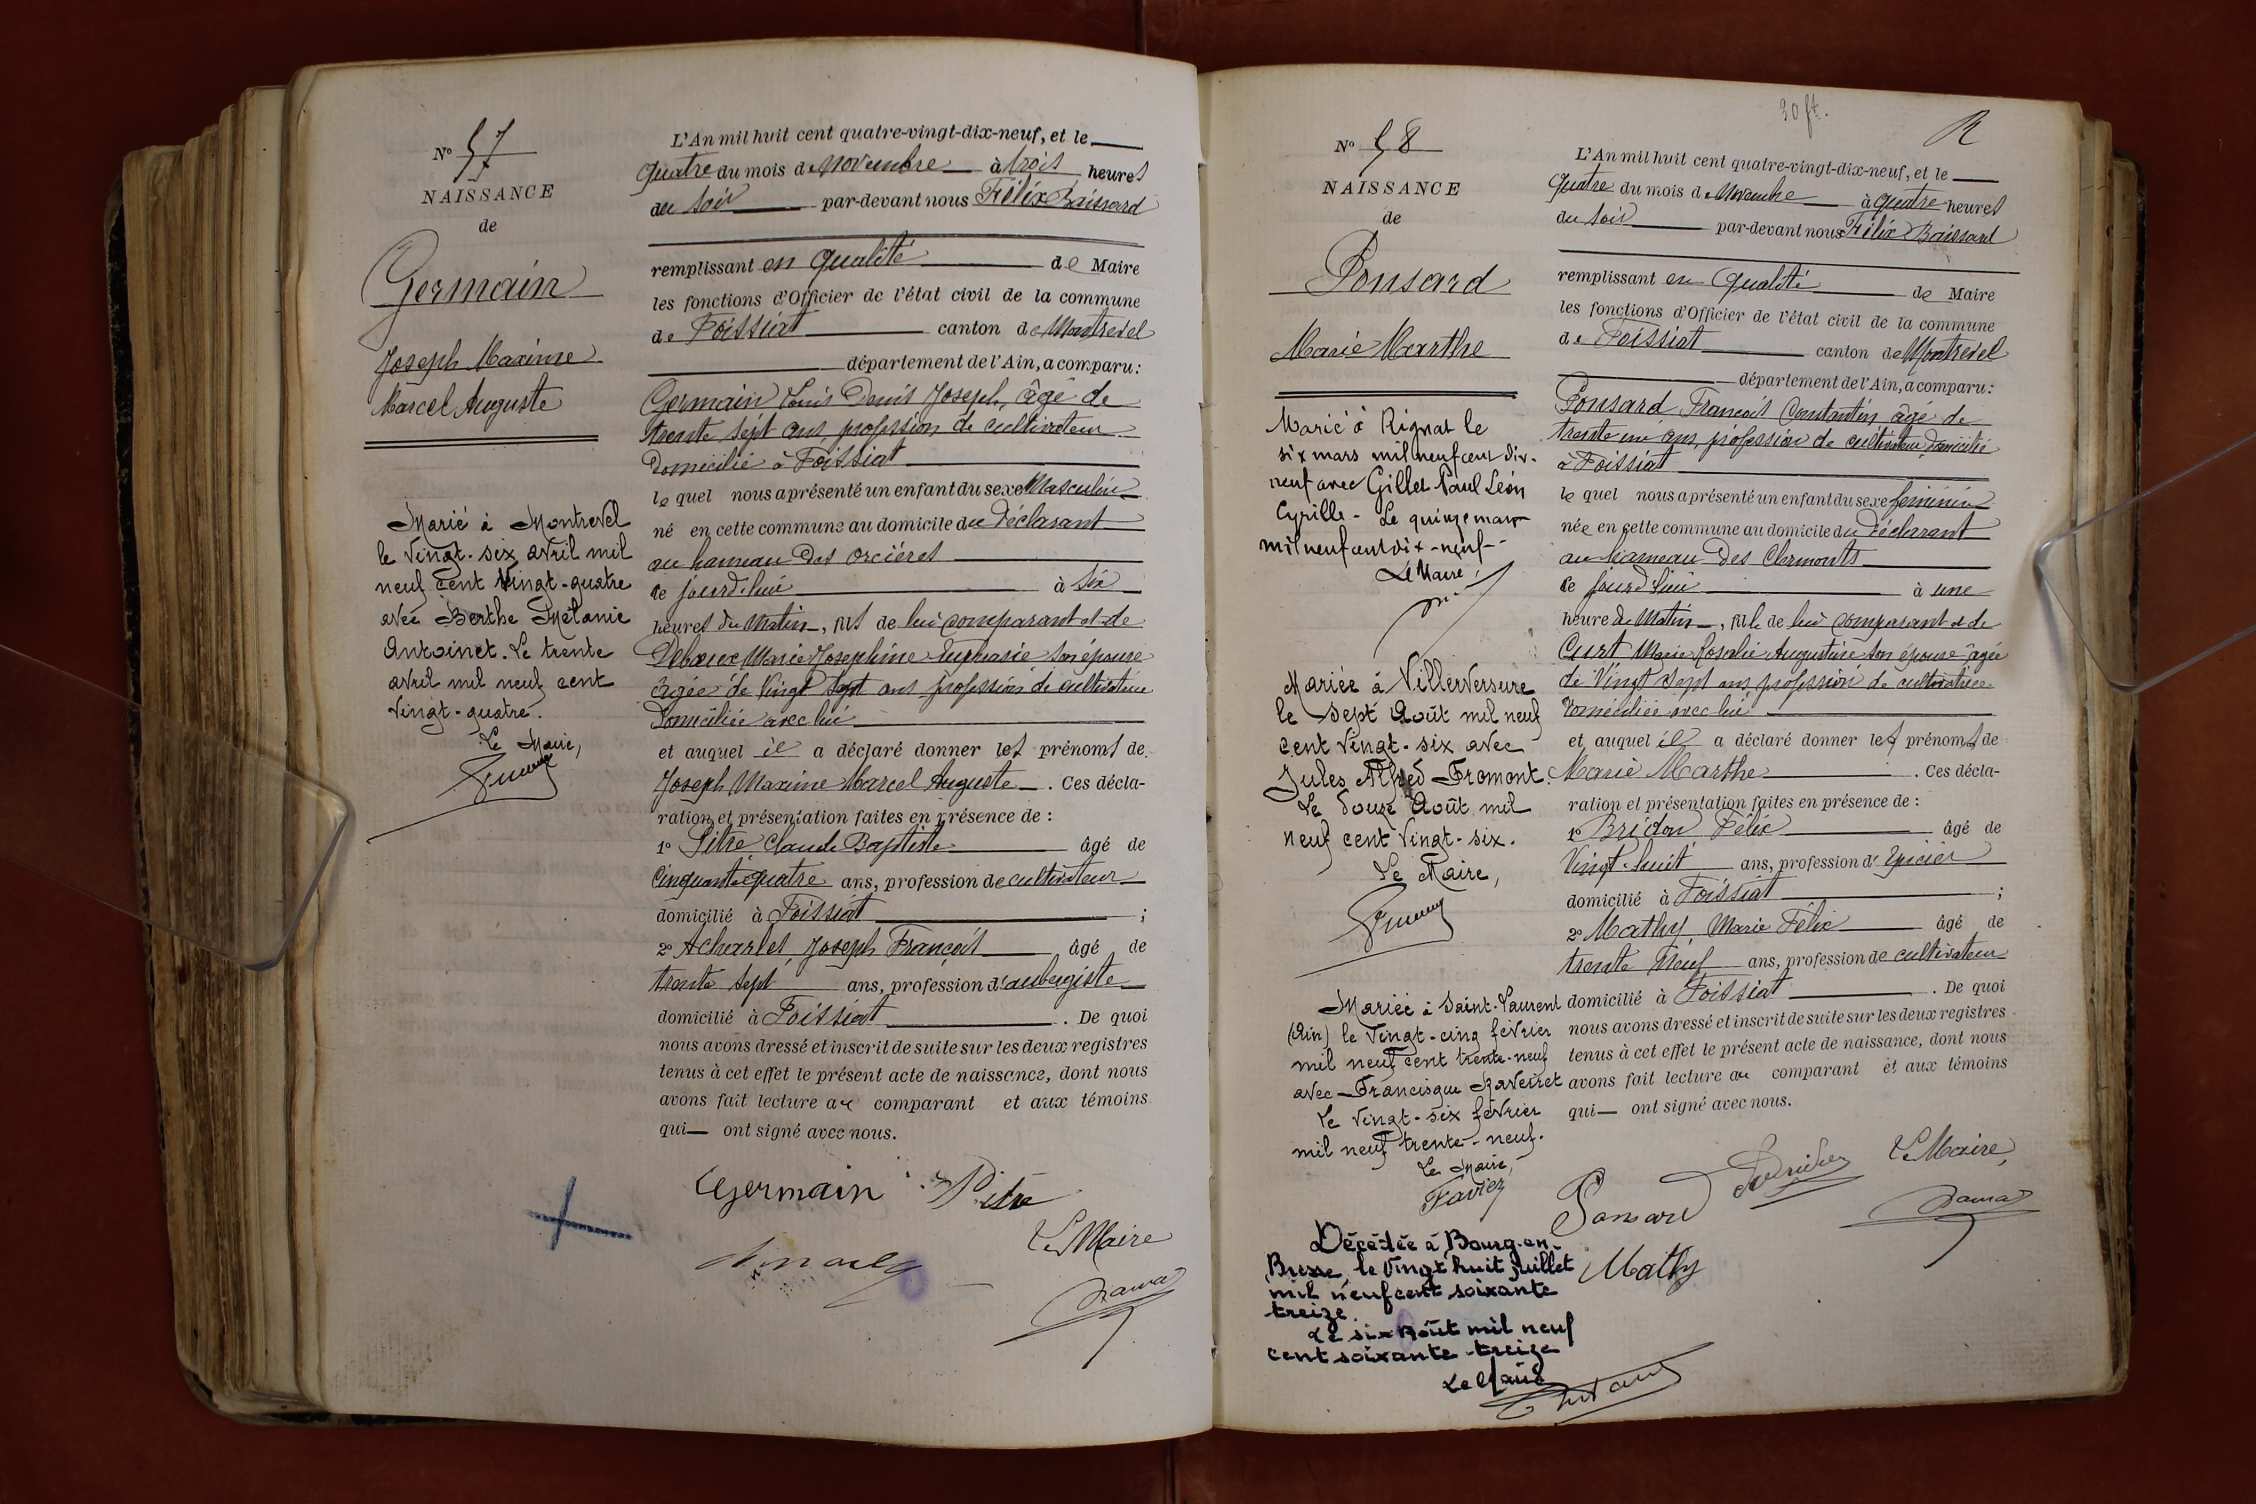 N° 57
NAISSANCE
de
Germain
Joseph Maxime
Marcel Auguste
Marié à Montrevel
le vingt-six avril mil
neuf cent vingt-quatre
avec Berthe Mélanie
Antoinet. Le trente
avril mil neuf cent
vingt-quatre.
Le Maire,
L'An mil huit cent quatre-vingt-dix-neuf, et le
quatre du mois de Novembre à trois heures
du soir par-devant nous Félix
remplissant en qualité de Maire
les fonctions d'Officier de l'état civil de la commune
de Foissiat canton de Montrevel
département de l'Ain, a comparu:
Germain Louis Denis Joseph, âgé de
trente sept ans, profession de cultivateur
Domicilié à Foissiat
le quel nous a présenté un enfant du sexe Masculin
né en cette commune au domicile du Déclarant
au hameau des Orcières
ce jourd'hui à six
heures du Matin, fils de lui comparant et de
Marie Josephine Euphrasie son épouse
âgée de Vingt sept ans profession de cultivatrice
Domiciliée avec lui
et auquel il a déclaré donner les prénoms de
Joseph Maxime Marcel Auguste. Ces décla-
ration et présentation faites en présence de :
1° Pitre Claude Baptiste âgé de
Cinquante quatre ans, profession de cultivateur
domicilié à Foissiat ;
2° Acharles, Joseph François âgé de
trente sept ans, profession d'aubergiste
domicilié à Foissiat. De quoi
nous avons dressé et inscrit de suite sur les deux registres
tenus à cet effet le présent acte de naissance, dont nous
avons fait lecture au comparant et aux témoins
qui ont signé avec nous.
Germain Pitre
Le Maire
30 ft.
R
N° 58
NAISSANCE
de
Ponsard
Marie Marthe
Marié à Rignat le
six mars mil neuf cent dix-
neuf avec Gillet Paul Léon
Cyrille - Le quinze mars
mil neuf cent dix-neuf-
Le Maire,
Mariée à Villereversure
le sept Août mil neuf
cent vingt-six avec
Jules Alfred Fromont.
Le douze Août mil
neuf cent vingt-six.
Le Maire,
Mariée à Saint-Laurent
(Ain) le vingt-cinq février
mil neuf cent trente-neuf
avec Francisque
Le vingt-six février
mil neuf trente-neuf.
Le Maire,
Favier
Décédée à Bourg-en-
Bresse le vingt huit juillet
mil neuf cent soixante
treize.
Le six Août mil neuf
cent soixante-treize
Le Maire
L'An mil huit cent quatre-vingt-dix-neuf, et le
quatre du mois de Novembre à quatre heures
du soir par-devant nous Félix
remplissant en qualité de Maire
les fonctions d'Officier de l'état civil de la commune
de Foissiat canton de Montrevel
département de l'Ain, a comparu:
Ponsard François Constantin âgé de
trente un ans, profession de cultivateur domicilié
à Foissiat
le quel nous a présenté un enfant du sexe féminin
née en cette commune au domicile du Déclarant
au hameau des Clermonts
ce jourd'hui à une
heure du Matin, fille de lui comparant et de
Curt Marie Rosalie Augustine son épouse âgée
de Vingt sept ans profession de cultivatrice
Domiciliée avec lui
et auquel il a déclaré donner les prénoms de
Marie Marthe. Ces décla-
ration et présentation faites en présence de :
1° Bridon Félix âgé de
Vingt-huit ans, profession d'Epicier
domicilié à Foissiat ;
2° Mathy Marie Félix âgé de
trente neuf ans, profession de cultivateur
domicilié à Foissiat. De quoi
nous avons dressé et inscrit de suite sur les deux registres
tenus à cet effet le présent acte de naissance, dont nous
avons fait lecture au comparant et aux témoins
qui ont signé avec nous.
Ponsard
Le Maire,
Mathy